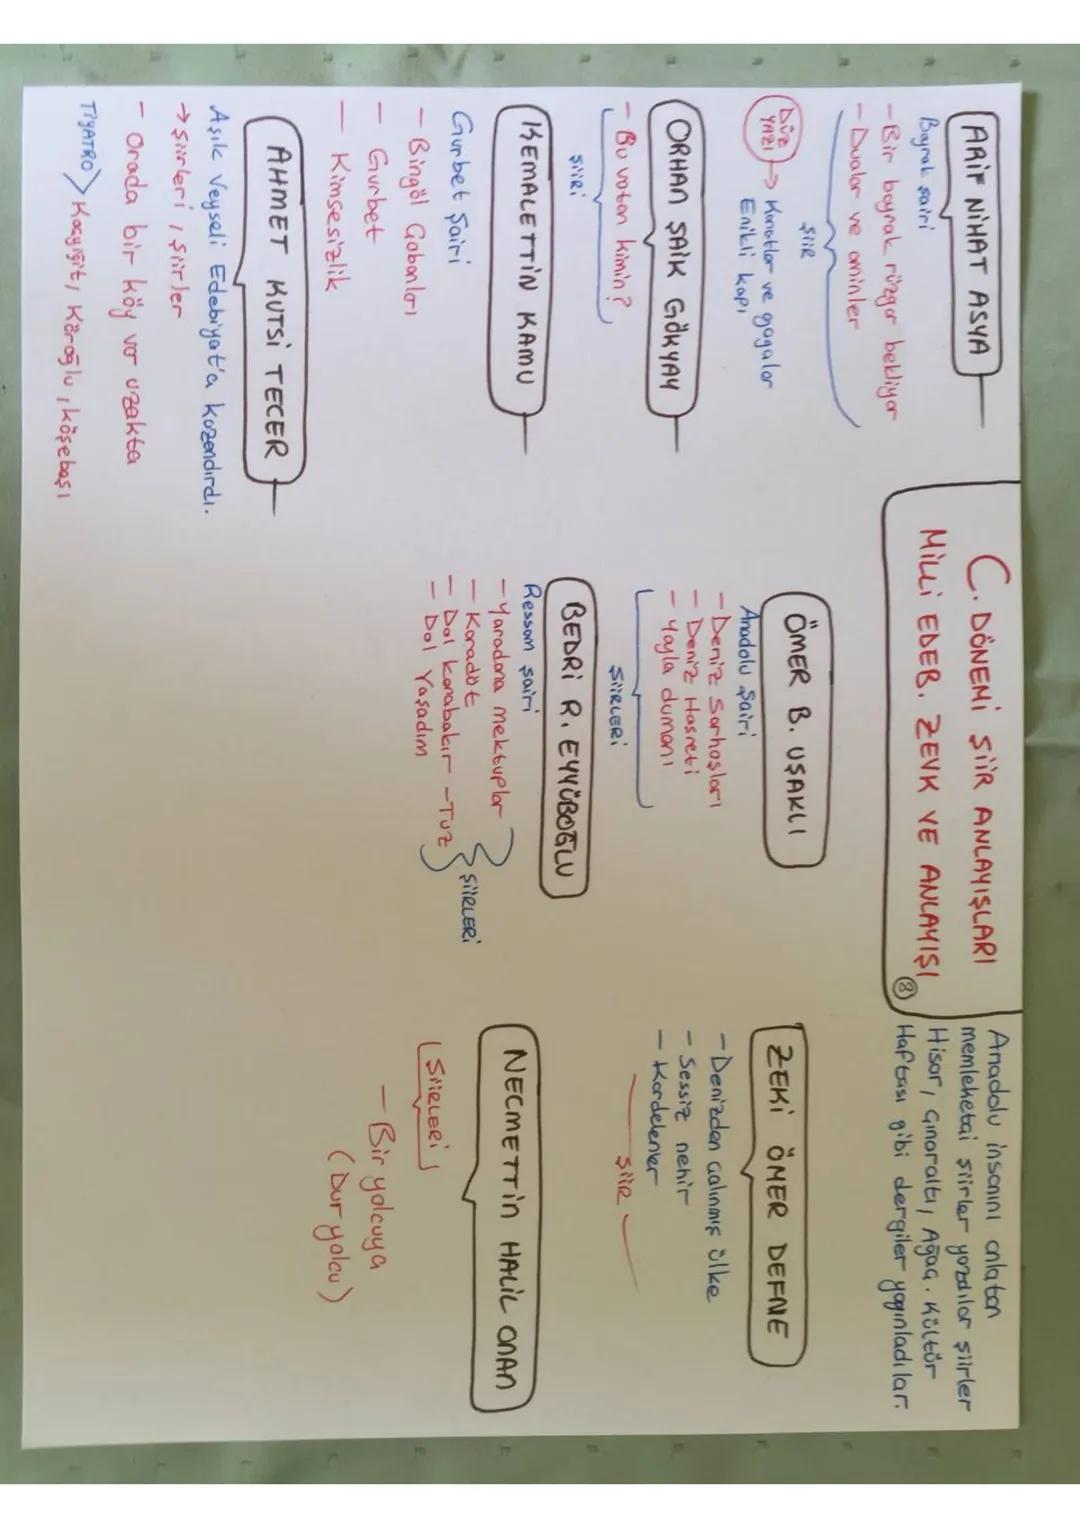 C. DÖNEMİ ŞİİR ANLAYIŞLARI
MİLLİ EDEB. ZEVK VE ANLAYIŞI
8
Anadolu insanını anlatan
memleketai şiirler yazdılar şiirler
Hisar, Çınaraltı, Ağaç. Kültür
Haftası gibi dergiler yayınladılar.
ARİF NİHAT ASYA
Bayrak şairi
- Bir bayrak rüzgar bekliyor
- Dualar ve aminler
ŞİİR
DÜZ
YAZI
→ Kanatlar ve gagalar
Enikli kapı
ORHAN ŞAİK GÖKYAY
- Bu vatan kimin?
ŞİİRİ
KEMALETTİN KAMU
Gurbet Şairi
- Bingöl Çobanları
- Gurbet
- Kimsesizlik
AHMET KUTSİ TECER
Aşık Veyseli Edebiyat'a kazandırdı.
→ şiirleri, şiirler
- Orada bir köy var uzakta
TİYATRO > Koçyiğit, Köroğlu, köşebaşı
ÖMER B. UŞAKLI
Anadolu Şairi
- Deniz Sarhoşları
- Deniz Hasreti
- Yayla dumanı
ŞİİRLERİ
BEDRİ R. EYYÜBOĞLU
Ressam şairi
- Yaradana mektuplar
- Karadöt
- Dol karabakır - Tuz
- Dol Yaşadım
ŞİİRLERİ
ZEKİ ÖMER DEFNE
- Denizden çalınmış ülke
- Sessiz nehir
- Kardelenler
ŞİİR
NECMETTİN HALİL ONAN
ŞİİRLERİ
- Bir yolcuya
(Dur yolcu)